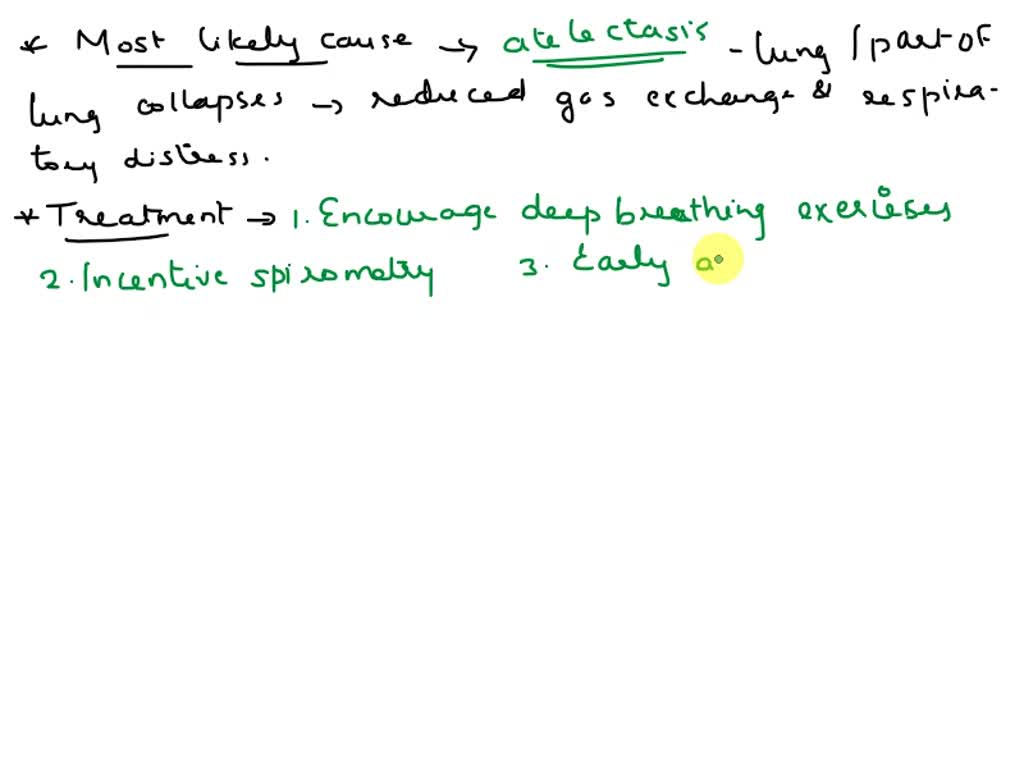 * Most likely cause → atelectasis - lung / part of
lung collapses → reduced gas exchange & respira-
tory distress.
* Treatment → 1. Encourage deep breathing exercises
2. Incentive spirometry 3. Early a